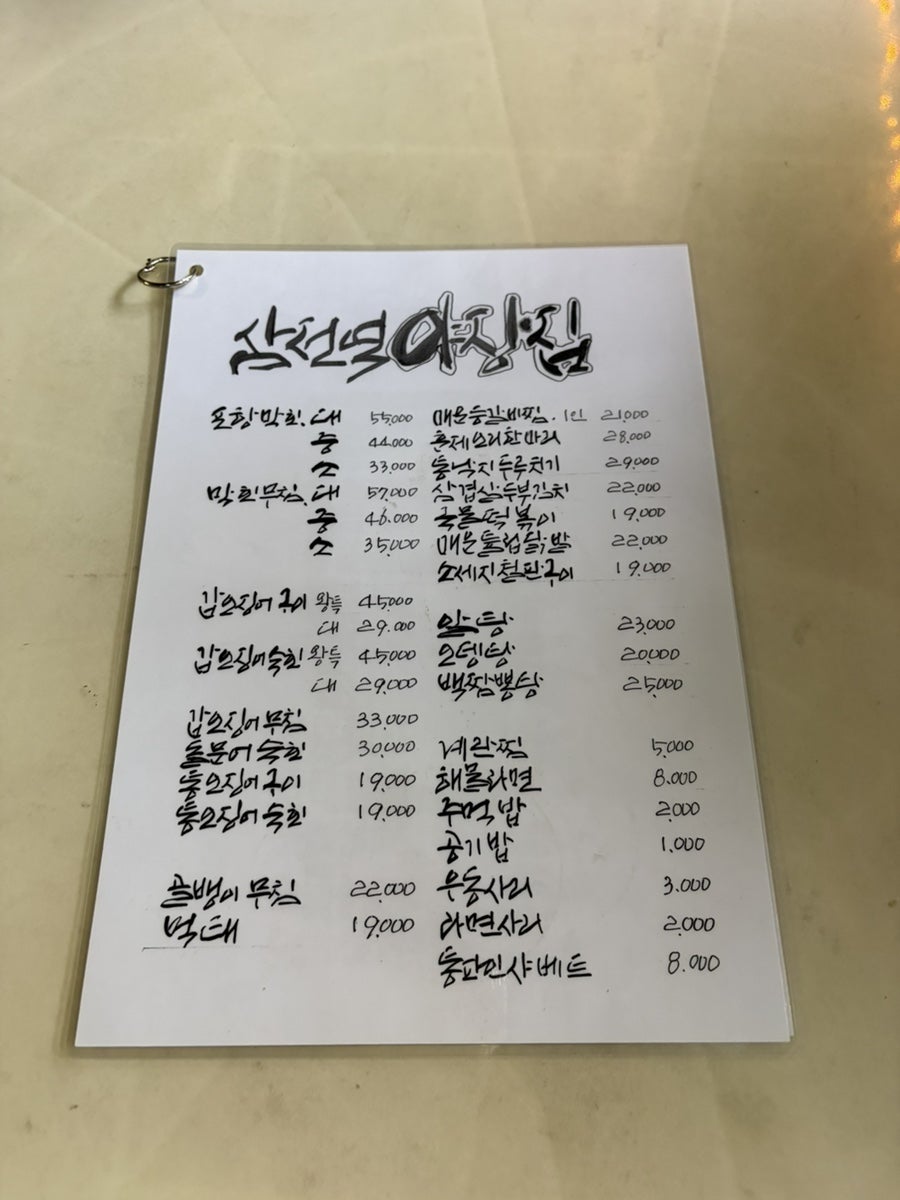 삼전역 야장집
포항막회. 대 55,000
중 44,000
소 33,000
막회무침. 대 57,000
중 46,000
소 35,000
갑오징어 구이 왕특 45,000
대 29,000
갑오징어숙회 왕특 45,000
대 29,000
갑오징어 무침 33,000
돌문어 숙회 30,000
통오징어 구이 19,000
통오징어 숙회 19,000
골뱅이 무침 22,000
먹태 19,000
매운등갈비찜. 1인 21,000
훈제오리한마리 28,000
통낙지두루치기 29,000
삼겹살두부김치 22,000
국물떡볶이 19,000
매운툴럽닭발 22,000
소세지철판구이 19,000
알탕 23,000
오뎅탕 20,000
백짬뽕탕 25,000
계란찜 5,000
해물라면 8,000
주먹밥 2,000
공기밥 1,000
우동사리 3,000
라면사리 2,000
통파인샤베트 8,000